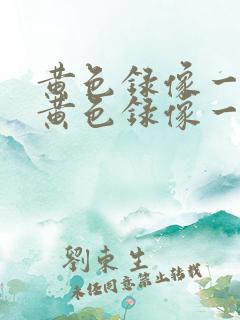 黄色録像一
黄色録像一
劉東生
未经同意禁止转载